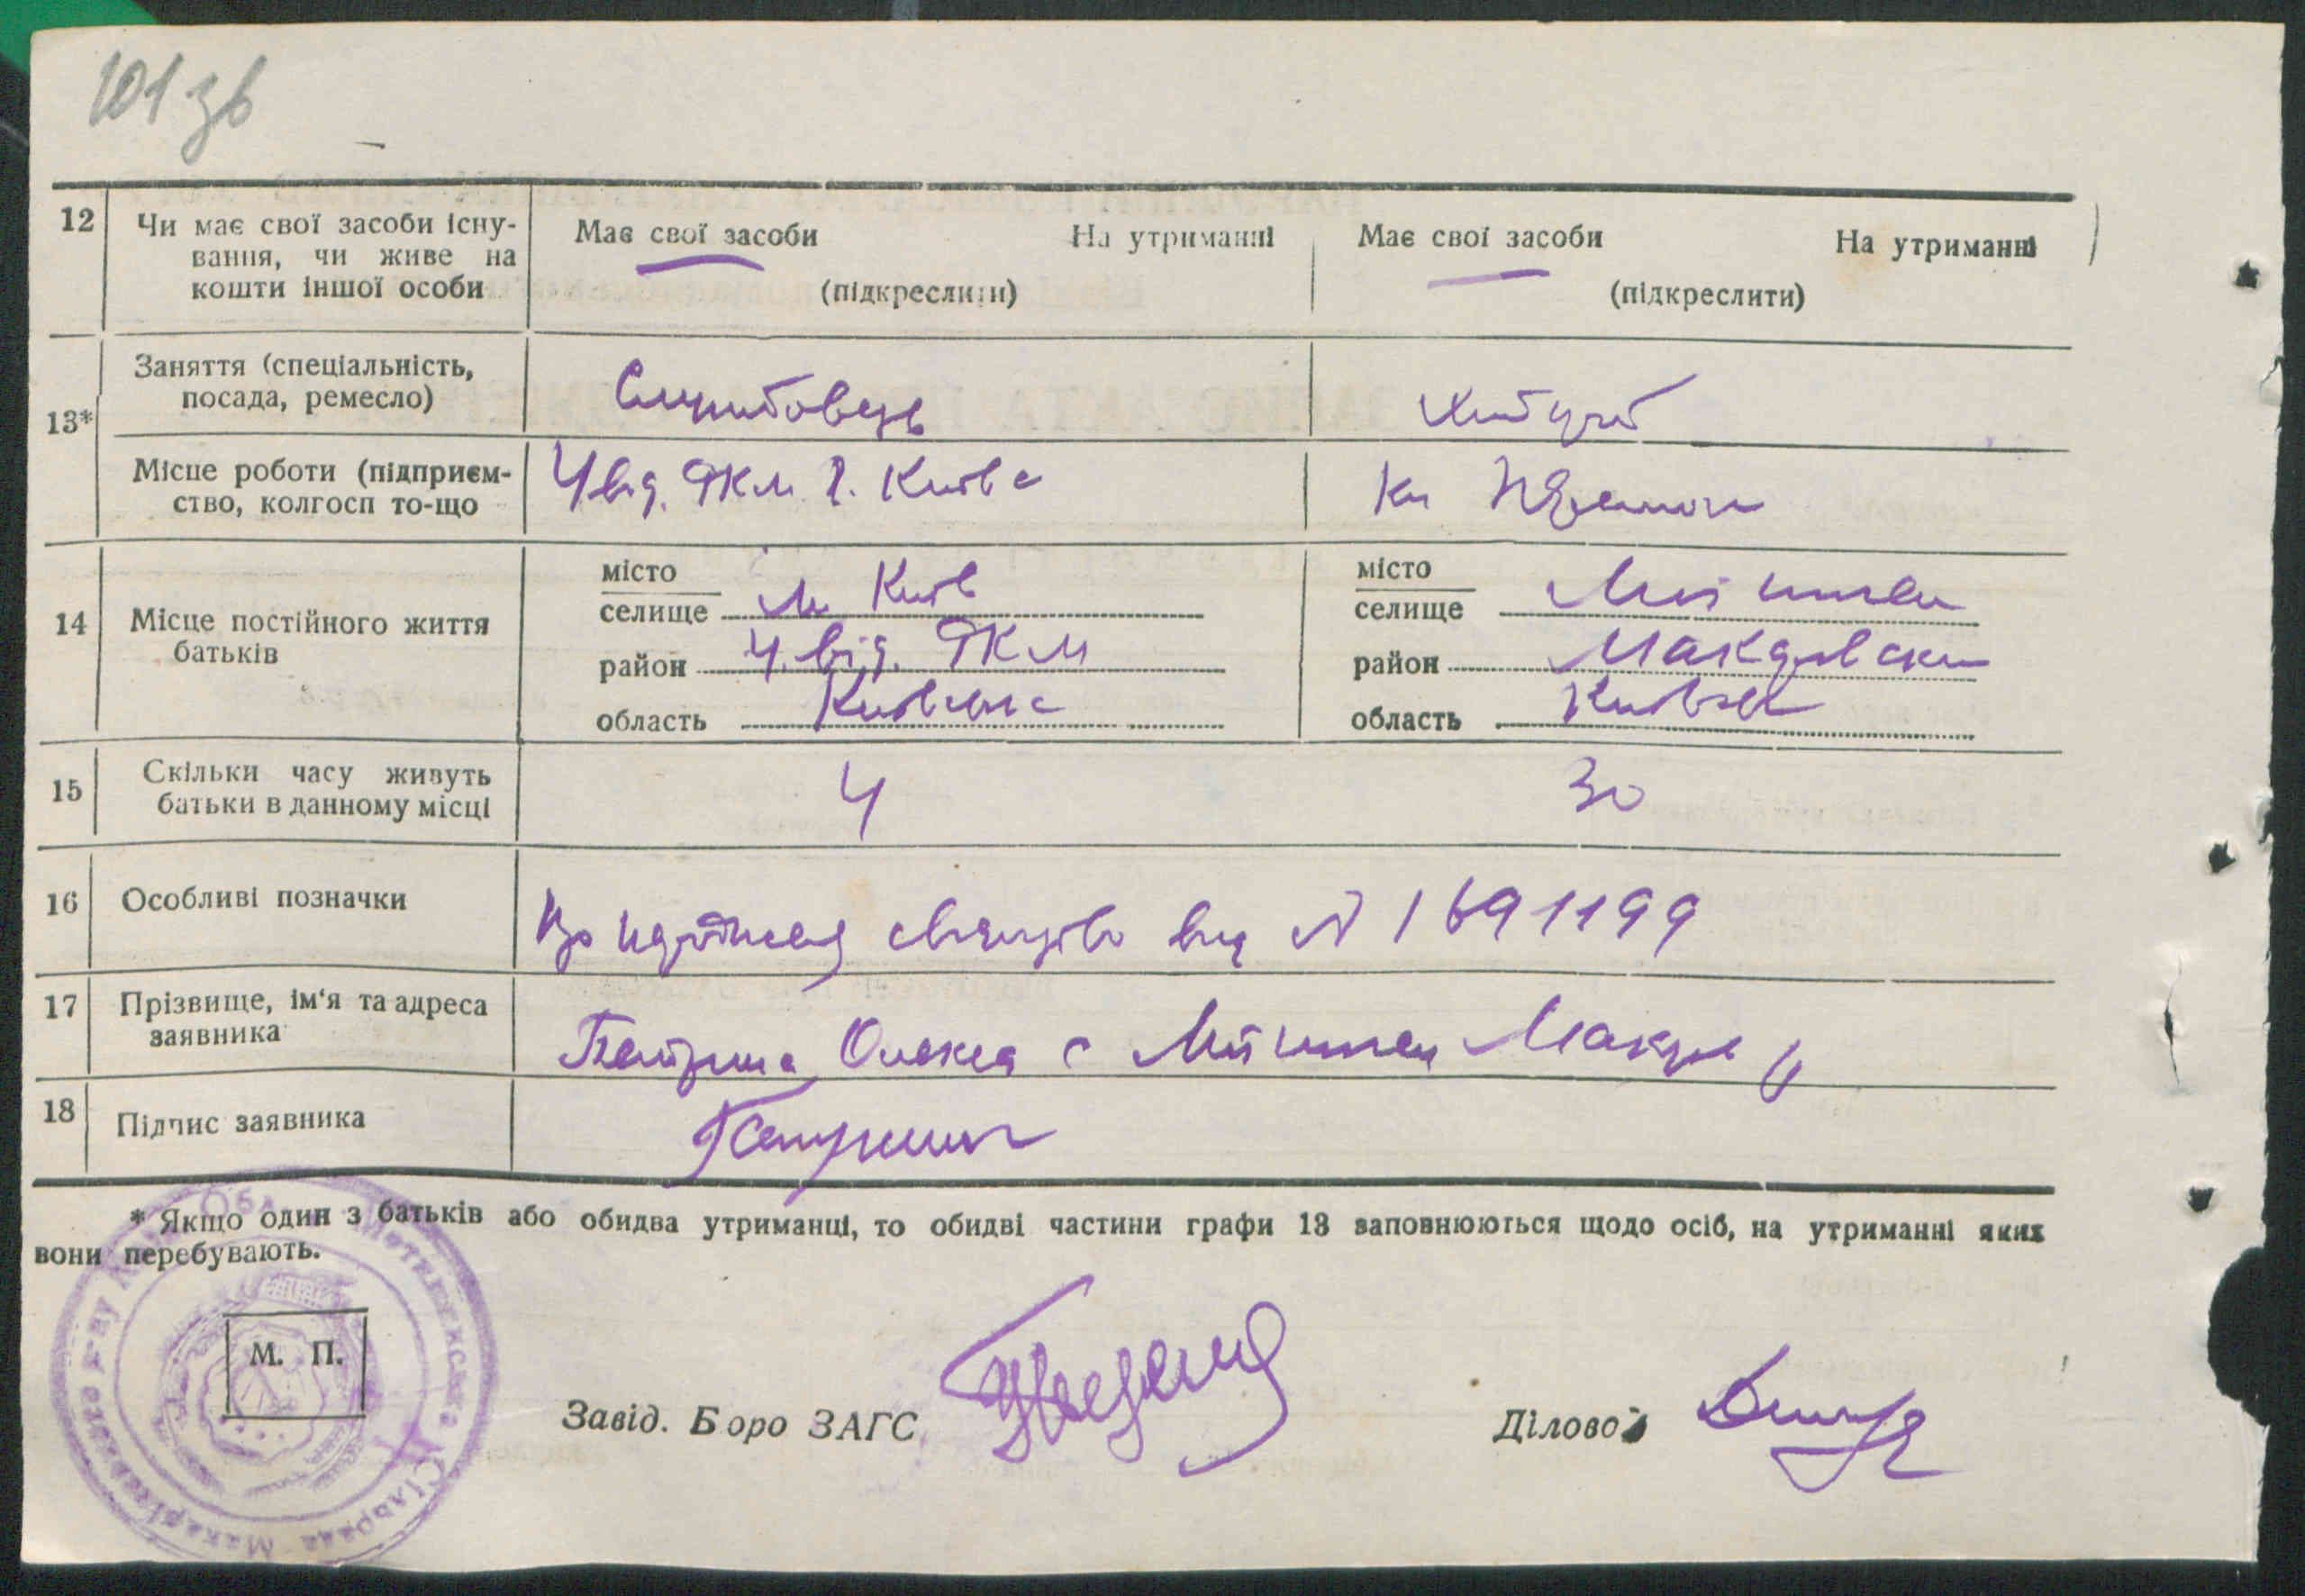 101 зв
12 Чи має свої засоби існу-
вання, чи живе на
кошти іншої особи
Має свої засоби На утриманні
(підкреслити)
Має свої засоби На утриманні
(підкреслити)
13*
Заняття (спеціальність,
посада, ремесло)
Службовець
Хлібороб
Місце роботи (підприєм-
ство, колгосп то-що
4 від. РКМ г. Київа
14 Місце постійного життя
батьків
місто
селище м Київ
район 4. від. РКМ
область Київська
місто
селище
район Макарівски
область Київськ
15 Скільки часу живуть
батьки в данному місці
4
30
16 Особливі позначки
свідоцтво № 1691199
17 Прізвище, ім‘я та адреса
заявника
Олекса с Макарів
18 Підпис заявника
* Якщо один з батьків або обидва утриманці, то обидві частини графи 13 заповнюються щодо осіб, на утриманні яких
вони перебувають.
М. П.
Завід. Боро ЗАГС
Діловод
Сільрада